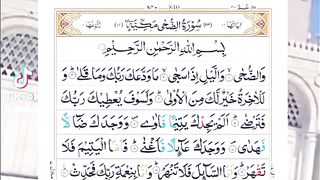 سُورَةُ الضُّحٰى مَكِّيَّةٌ
بِسْمِ اللّٰهِ الرَّحْمٰنِ الرَّحِيْمِ
وَالضُّحٰى وَالَّيْلِ اِذَا سَجٰى مَا وَدَّعَكَ رَبُّكَ وَمَا قَلٰى
وَلَلْاٰخِرَةُ خَيْرٌ لَّكَ مِنَ الْاُوْلٰى وَلَسَوْفَ يُعْطِيْكَ رَبُّكَ
فَتَرْضٰى اَلَمْ يَجِدْكَ يَتِيْمًا فَاٰوٰى وَوَجَدَكَ ضَآلًّا
فَهَدٰى وَوَجَدَكَ عَآئِلًا فَاَغْنٰى فَاَمَّا الْيَتِيْمَ فَلَا
تَقْهَرْ وَاَمَّا السَّآئِلَ فَلَا تَنْهَرْ وَاَمَّا بِنِعْمَةِ رَبِّكَ فَحَدِّثْ